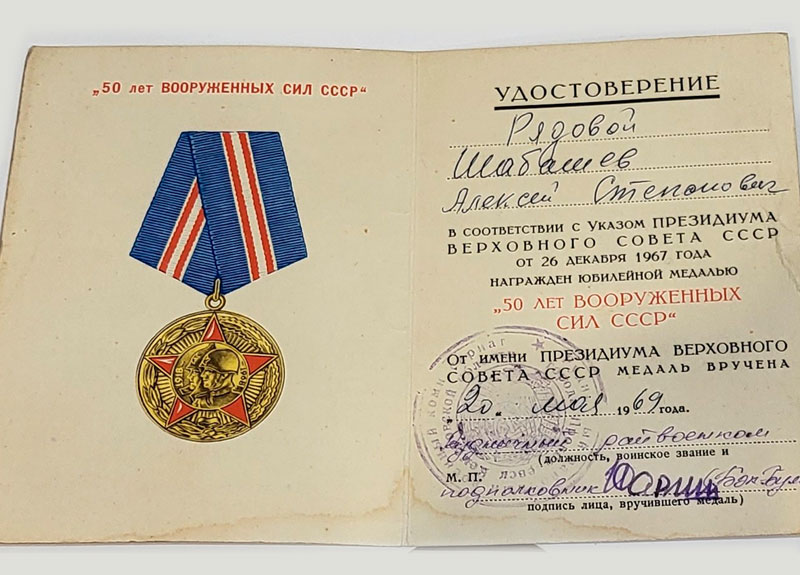 „50 лет ВООРУЖЕННЫХ СИЛ СССР“
1918
УДОСТОВЕРЕНИЕ
Рядовой
Шабашев
Алексей Степанович
В СООТВЕТСТВИИ С УКАЗОМ ПРЕЗИДИУМА
ВЕРХОВНОГО СОВЕТА СССР
ОТ 26 ДЕКАБРЯ 1967 ГОДА
НАГРАЖДЕН ЮБИЛЕЙНОЙ МЕДАЛЬЮ
„50 ЛЕТ ВООРУЖЕННЫХ
СИЛ СССР“
ОТ ИМЕНИ ПРЕЗИДИУМА ВЕРХОВНОГО
СОВЕТА СССР МЕДАЛЬ ВРУЧЕНА
„20„ мая 1969 года.
райвоенком
(должность, воинское звание и
М. П.
подполковник
подпись лица, вручившего медаль)